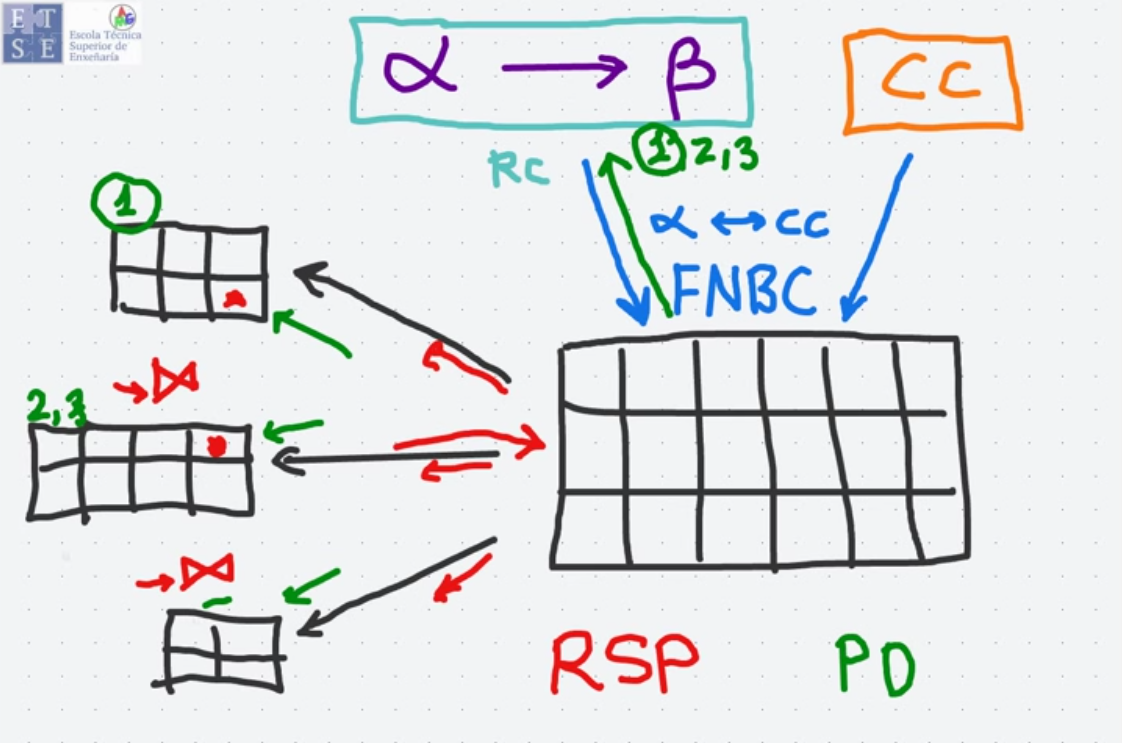 E T
S E
Escola Técnica
Superior de
Enxeñaría
α → β
CC
RC
① 2,3
α ↔ CC
FNBC
①
⋈
2,3
⋈
RSP
PD